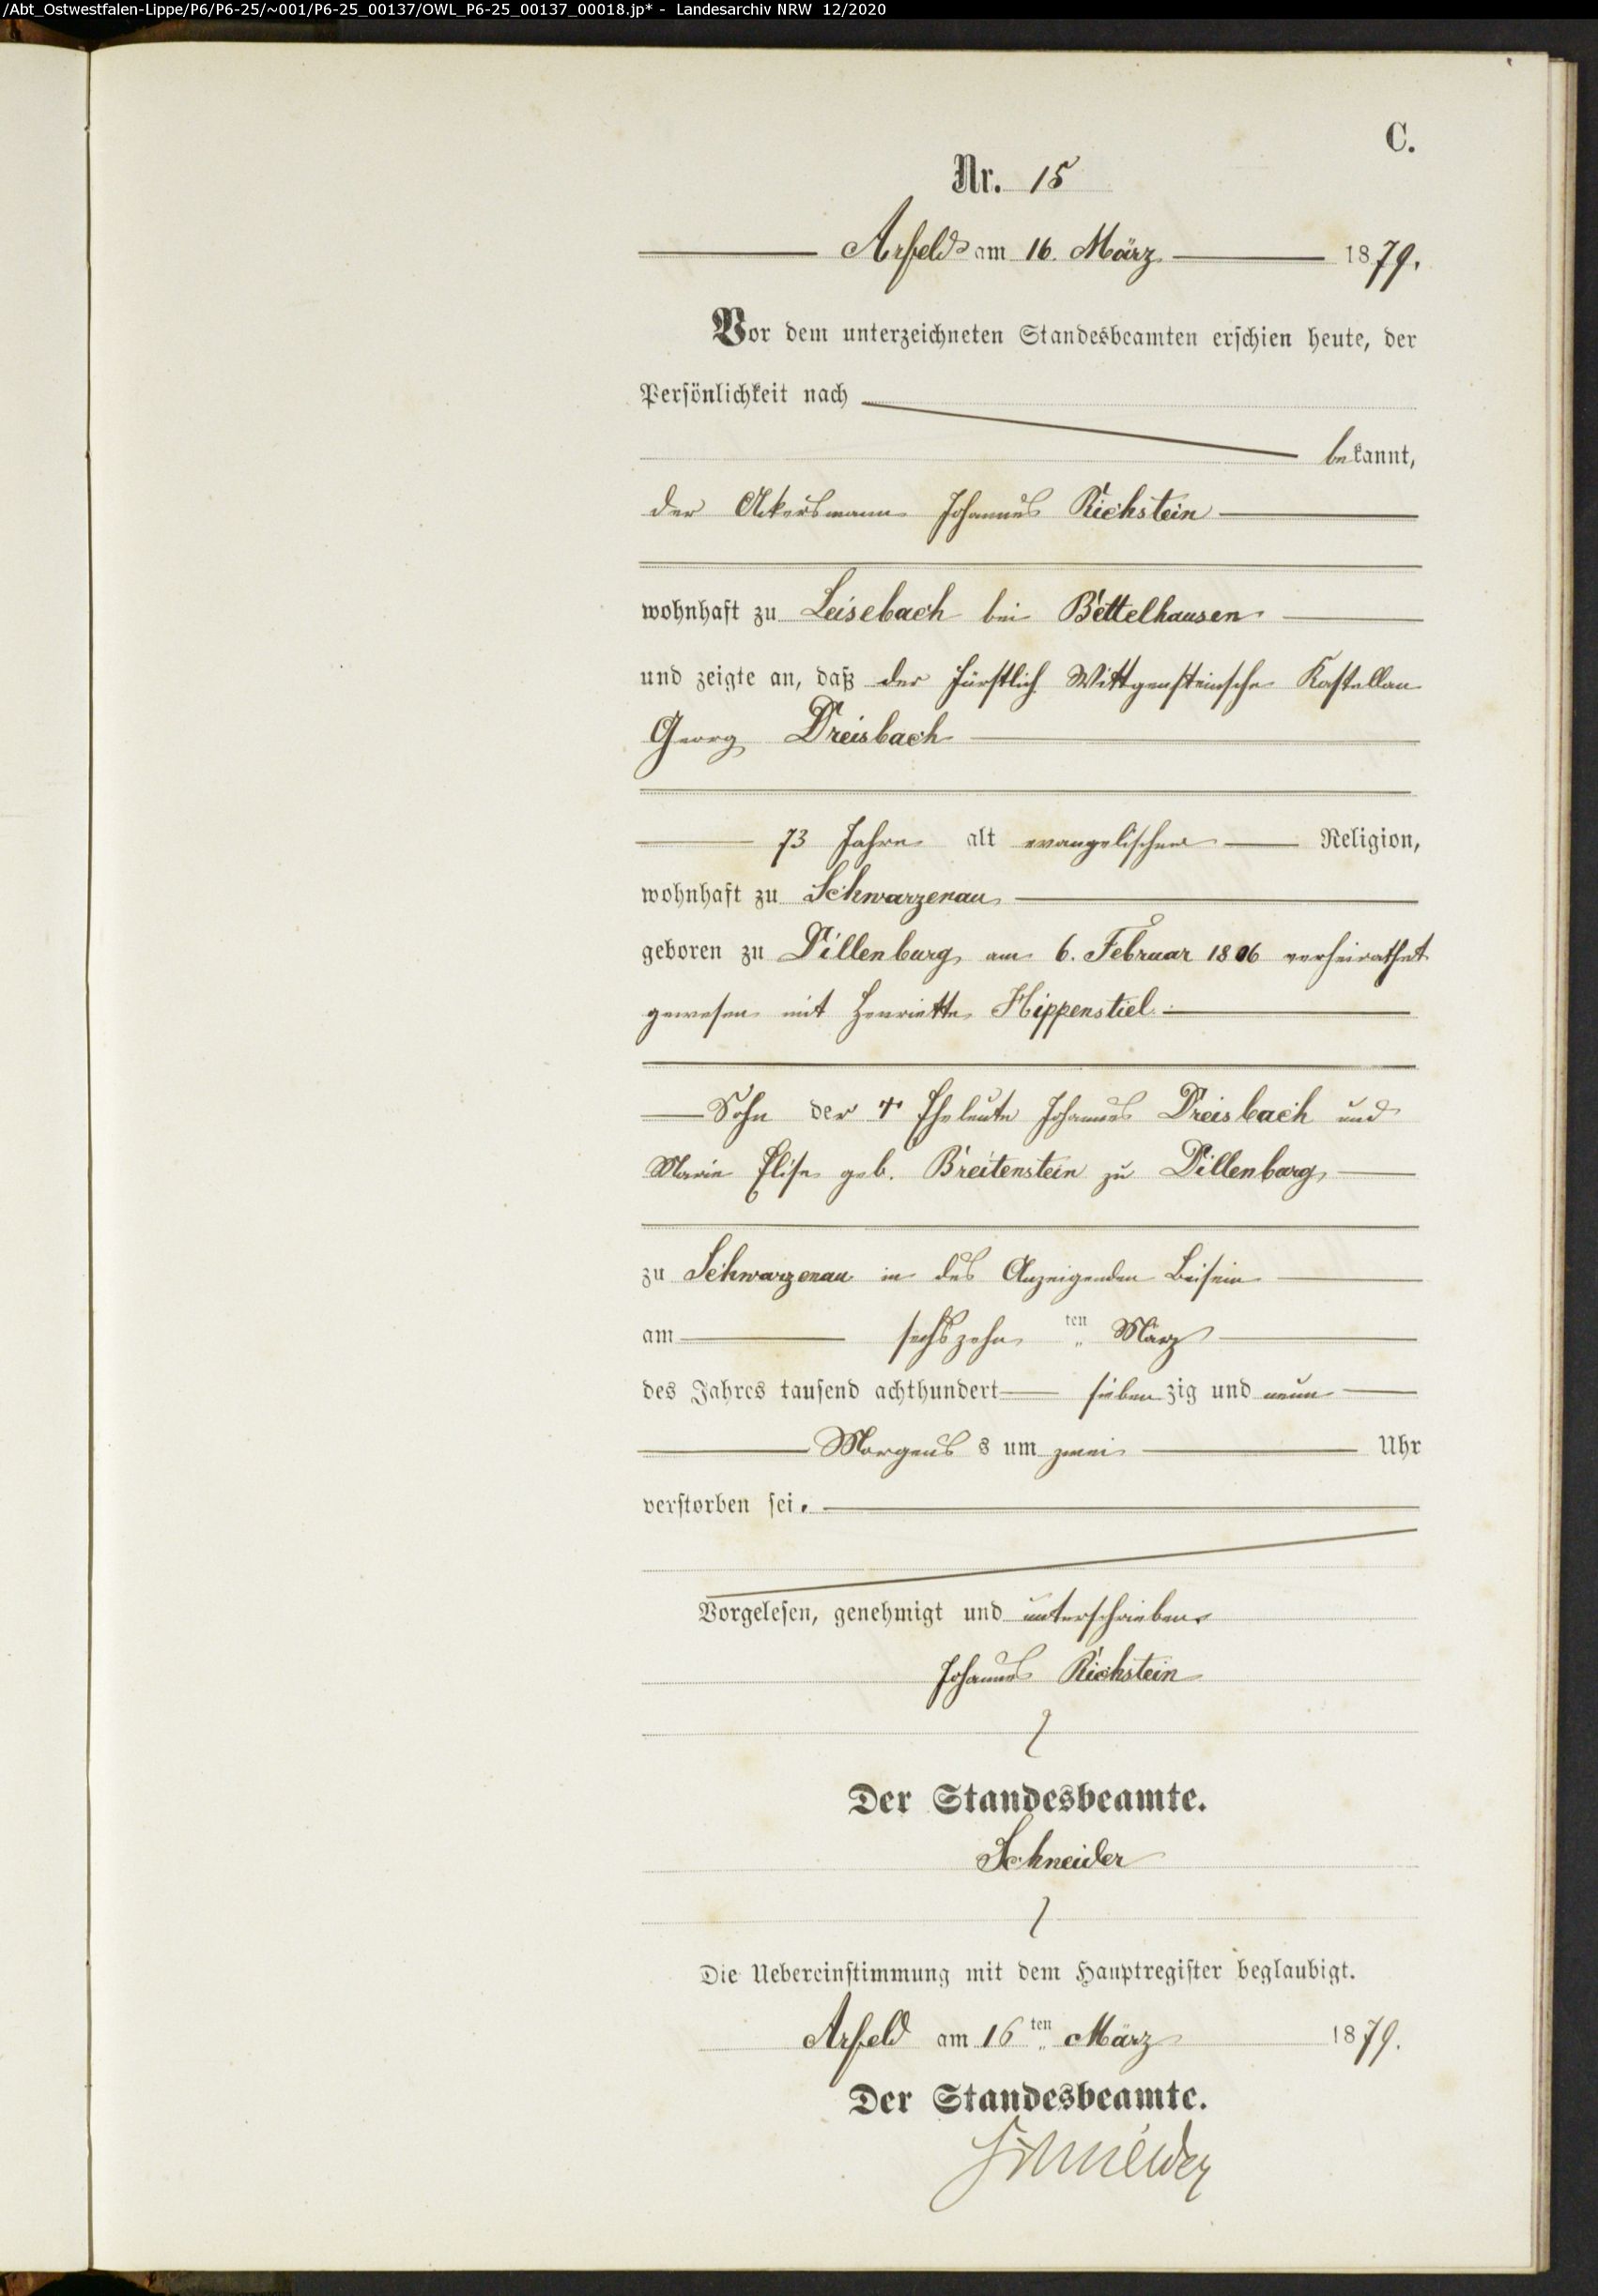 /Abt_Ostwestfalen-Lippe/P6/P6-25/~001/P6-25_00137/OWL_P6-25_00137_00018.jp* - Landesarchiv NRW 12/2020
C.
Nr. 15
Arfeld am 16. März 1879.
Vor dem unterzeichneten Standesbeamten erschien heute, der
Persönlichkeit nach
bekannt,
der Ackersmann Johannes Richstein
wohnhaft zu Leisebach bei Bettelhausen
und zeigte an, daß der Fürstlich Wittgensteinsche Kastellan
Georg Dreisbach
73 Jahre alt evangelischer Religion,
wohnhaft zu Schwarzenau
geboren zu Dillenburg am 6. Februar 1806 verheirathet
gewesen mit Henriette Hippenstiel.
Sohn der † Eheleute Johannes Dreisbach und
Marie Elise geb. Breitenstein zu Dillenburg,
zu Schwarzenau in des Anzeigenden Beisein
am sechszehn ten März
des Jahres tausend achthundert siebenzig und neun
Morgens s um zwei Uhr
verstorben sei.
Vorgelesen, genehmigt und unterschrieben
Johannes Richstein
Der Standesbeamte.
Schneider
Die Uebereinstimmung mit dem Hauptregister beglaubigt.
Arfeld am 16ten März 1879.
Der Standesbeamte.
Schneider